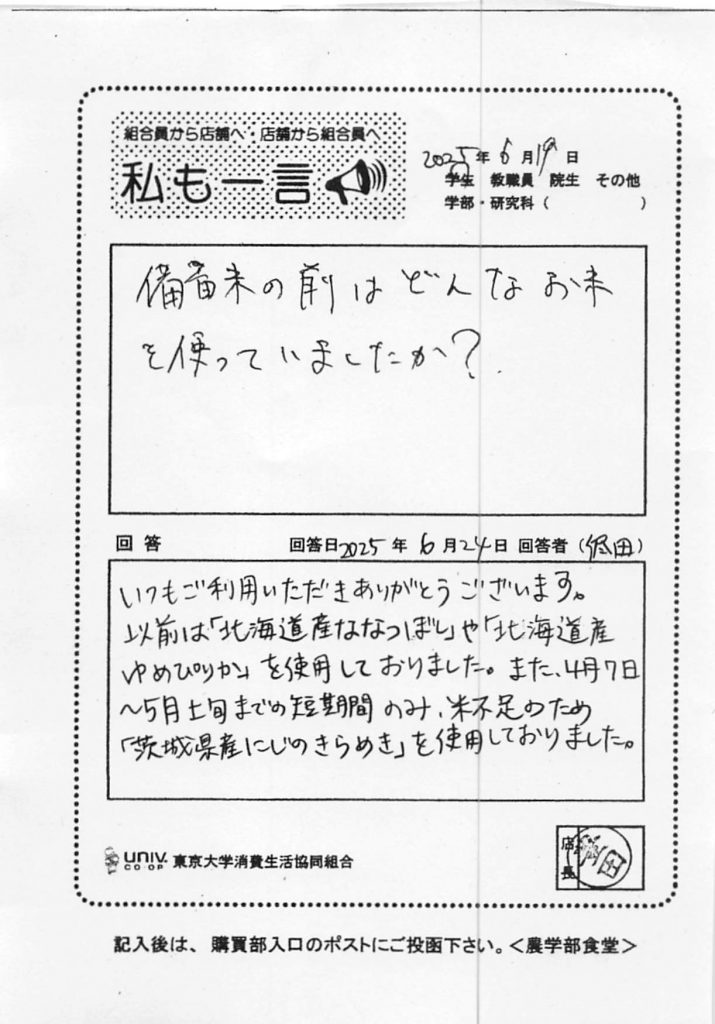 組合員から店舗へ・店舗から組合員へ
私も一言
2025年6月19日
学生 教職員 院生 その他
学部・研究科( )
備蓄米の前はどんなお米
を使っていましたか?
回答 回答日2025年6月24日 回答者(田)
いつもご利用いただきありがとうございます。
以前は「北海道産ななつぼし」や「北海道産
ゆめぴりか」を使用しておりました。また、4月7日
〜5月上旬までの短期間のみ、米不足のため
「茨城県産にじのきらめき」を使用しておりました。
UNIV.
CO-OP
東京大学消費生活協同組合
店長
田
記入後は、購買部入口のポストにご投函下さい。<農学部食堂>